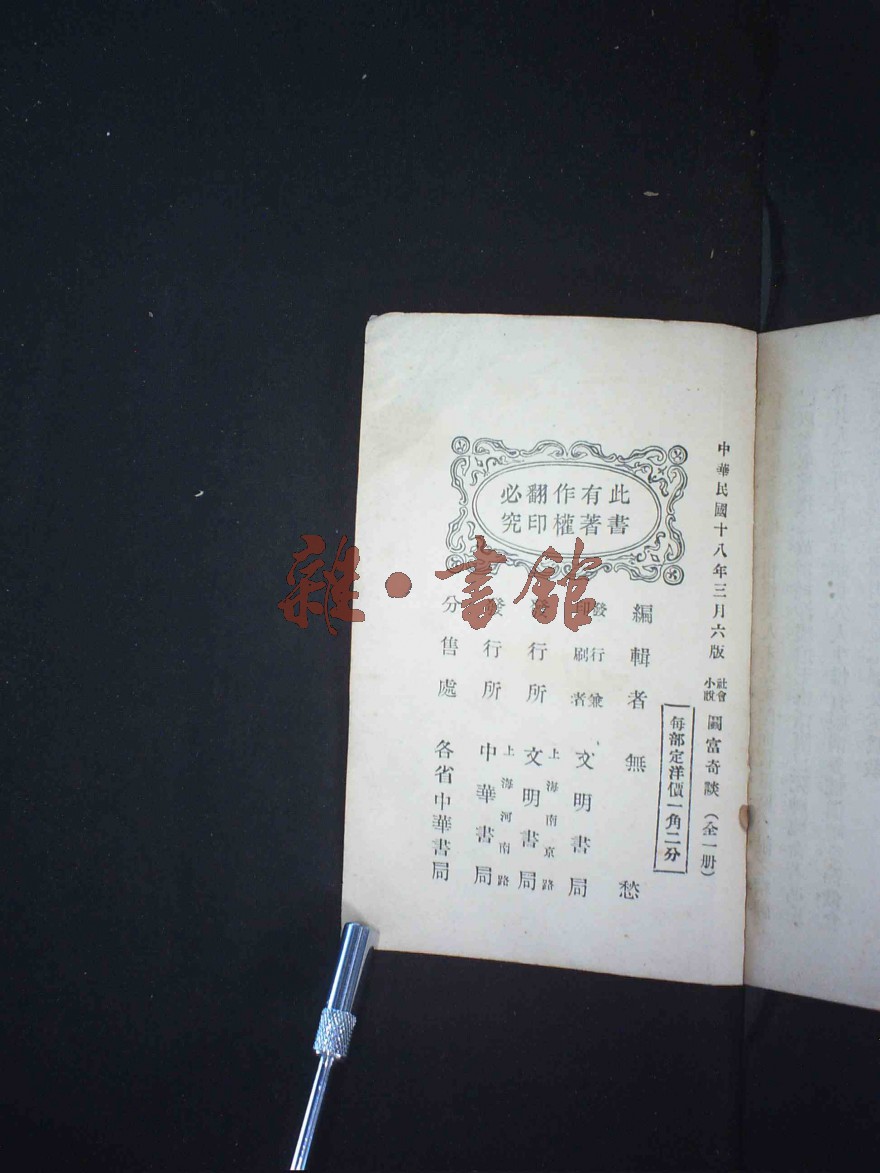 中華民國十八年三月六版
社會小說 闊富奇談（全一册）
每部定洋價一角二分
此書有著作權翻印必究
編輯者 無愁
發行兼印刷者 文明書局
發行所 上海南京路 文明書局
發行所 上海河南路 中華書局
分售處 各省中華書局
雜·書館